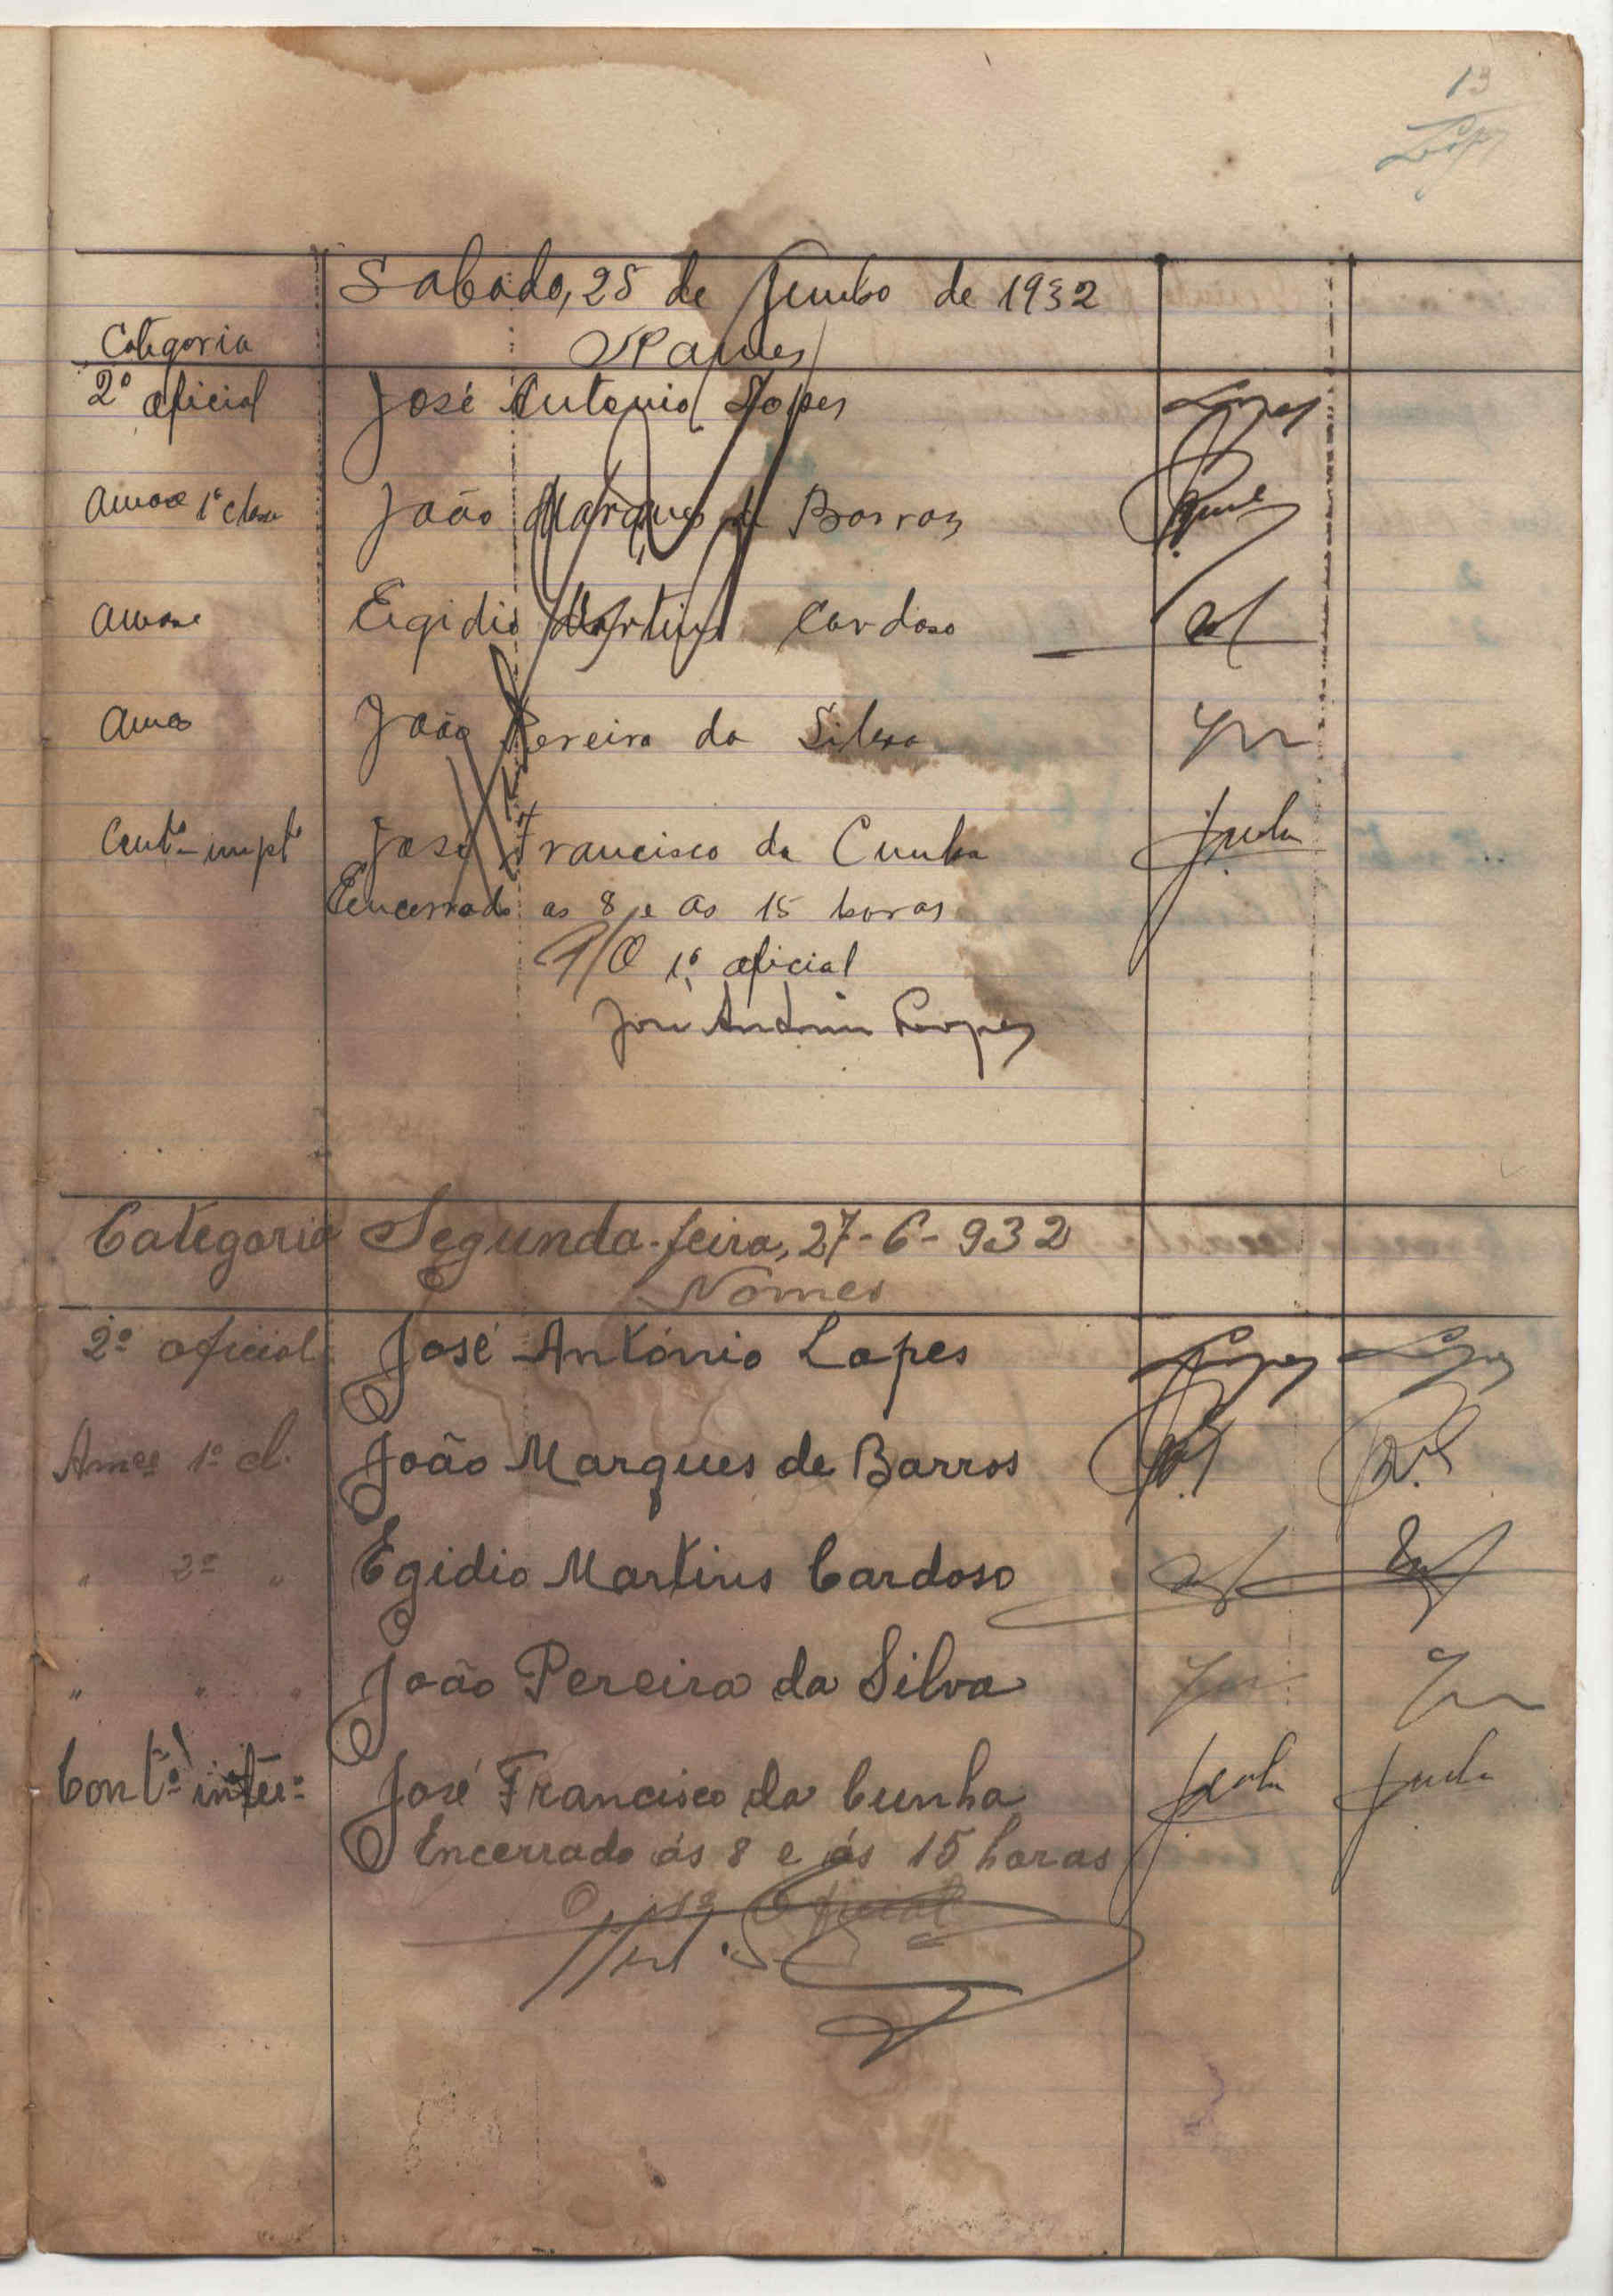 13
Sabado, 25 de Junho de 1932
Categoria Nomes
2º oficial José Antonio Lopes Lopes
1ª classe João Marques de Barros
Egidio Martins Cardoso
João Pereira da Silva
José Francisco da Cunha
Eencerrado as 8 e as 15 horas
P/O 1º oficial
José António Lopes
Categoria Segunda-feira, 27-6-932
Nomes
2º oficial José António Lopes Lopes Lopes
1ª cl. João Marques de Barros
" 2ª " Egidio Martins Cardoso
" " " João Pereira da Silva
Contº José Francisco da Cunha
Encerrado ás 8 e ás 15 horas
O 1º Oficial